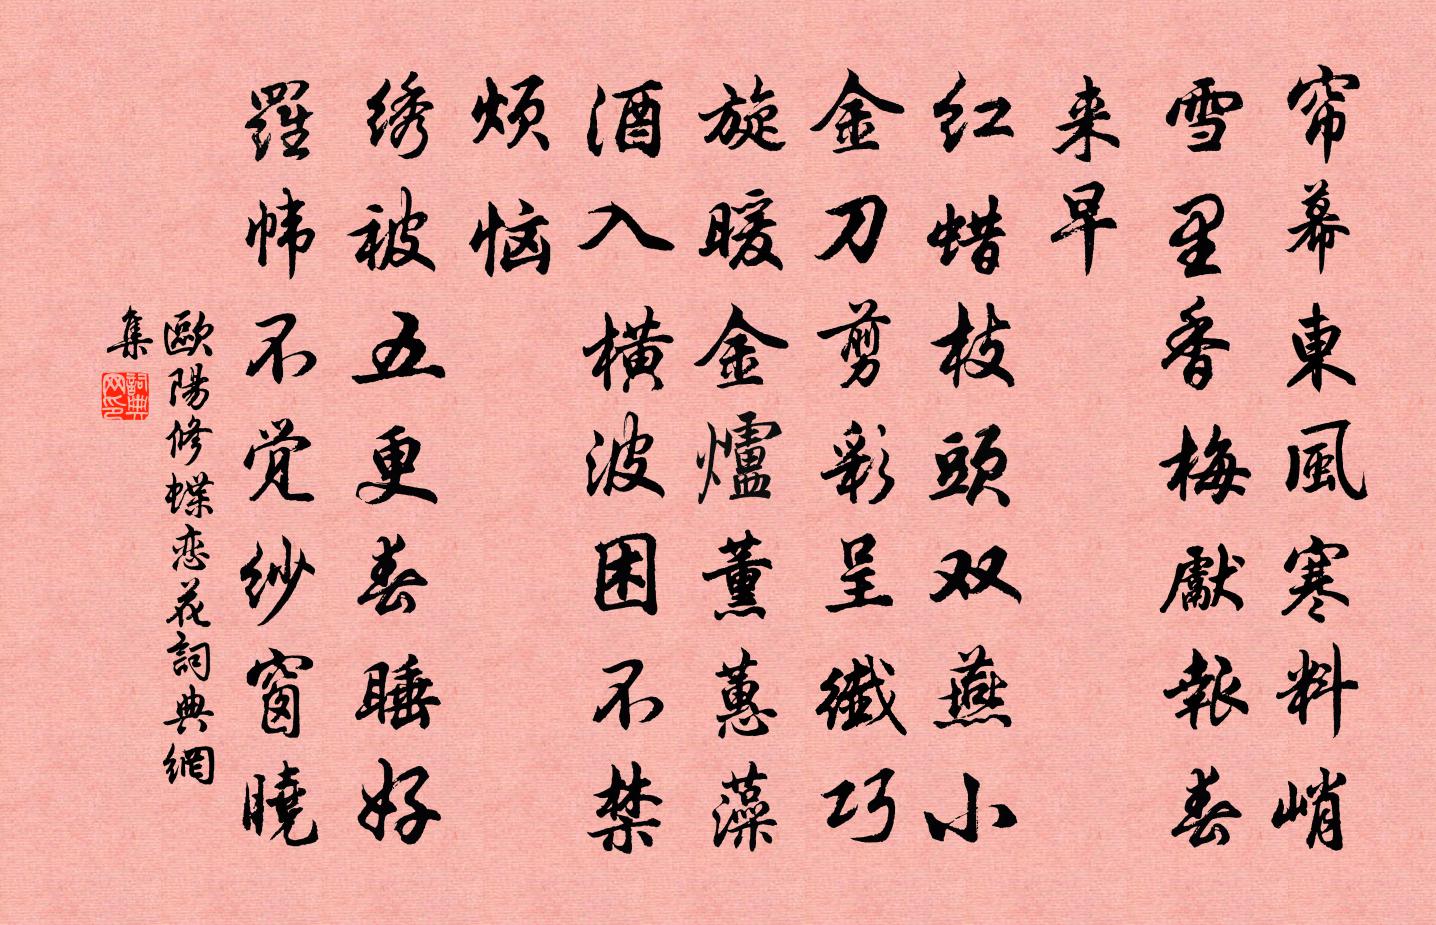 帘幕東風寒料峭
雪里香梅獻報春
来早
红蜡枝頭双燕小
金刀剪彩呈纖巧
旋暖金爐薰蕙藻
酒入横波困不禁
烦恼
绣被五更春睡好
羅帏不觉纱窗曉
歐陽修蝶恋花詞典網
集
詞典
网印